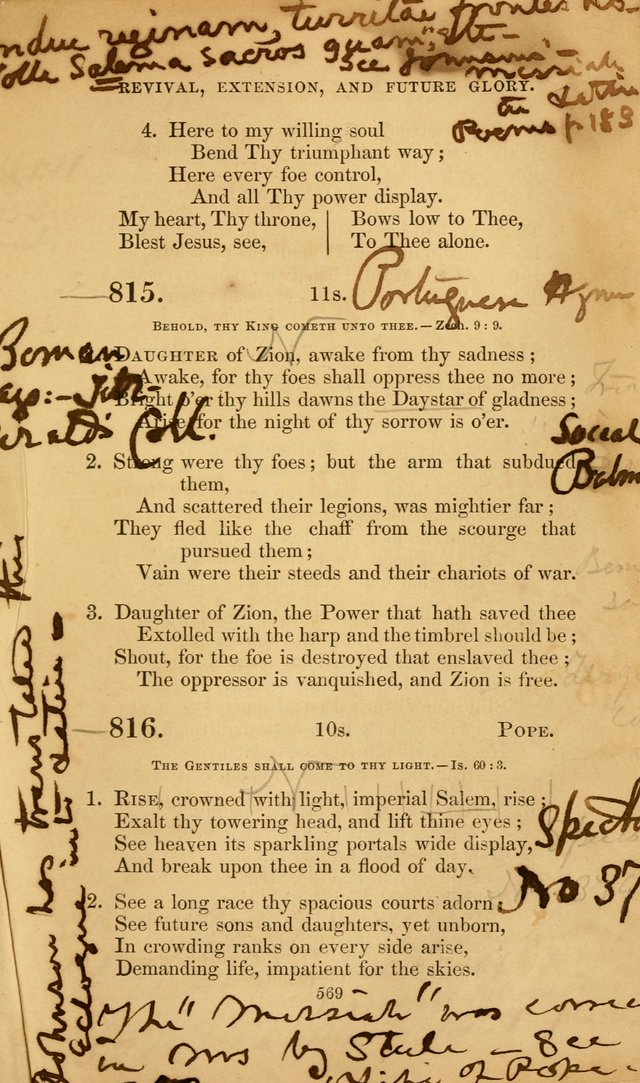 REVIVAL, EXTENSION, AND FUTURE GLORY.
Messiah
Poems p 183
4. Here to my willing soul
Bend Thy triumphant way;
Here every foe control,
And all Thy power display.
My heart, Thy throne, | Bows low to Thee,
Blest Jesus, see, | To Thee alone.
815. 11s. Portuguese Hymn
Behold, thy King cometh unto thee.—Zech. 9:9.
Daughter of Zion, awake from thy sadness;
Awake, for thy foes shall oppress thee no more;
Bright o'er thy hills dawns the Daystar of gladness;
Arise, for the night of thy sorrow is o'er.
Coll.
Social
2. Strong were thy foes; but the arm that subdued
them,
And scattered their legions, was mightier far;
They fled like the chaff from the scourge that
pursued them;
Vain were their steeds and their chariots of war.
3. Daughter of Zion, the Power that hath saved thee
Extolled with the harp and the timbrel should be;
Shout, for the foe is destroyed that enslaved thee;
The oppressor is vanquished, and Zion is free.
816. 10s. Pope.
The Gentiles shall come to thy light.—Is. 60:3.
1. Rise, crowned with light, imperial Salem, rise;
Exalt thy towering head, and lift thine eyes;
See heaven its sparkling portals wide display,
And break upon thee in a flood of day.
No 37
2. See a long race thy spacious courts adorn;
See future sons and daughters, yet unborn,
In crowding ranks on every side arise,
Demanding life, impatient for the skies.
569
Johnson has translated this
Eclogue into Latin
The "Messiah" was
in MS by Steele – See
Life of Pope